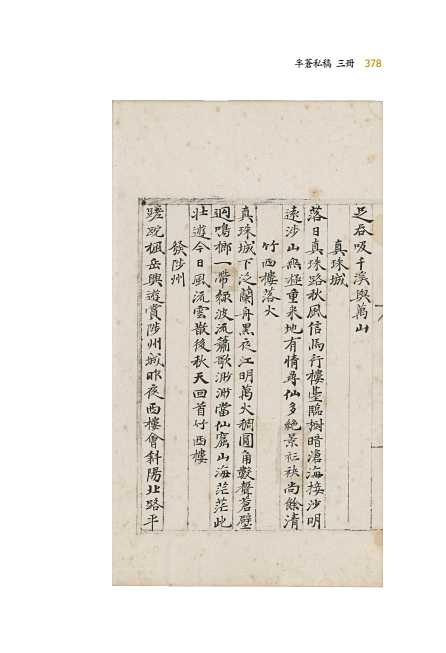 半蒼私稿 三冊 378
足吞吸千溪與萬山
真珠城
落日真珠路秋風信馬行樓坮臨樹暗滄海接沙明
遠涉山無極重來地有情尋仙多絶景衫袂尚餘清
竹西樓落火
真珠城下泛蘭舟黑夜江明萬火稠圓角數聲蒼壁
迥鳴榔一帶綠波流簫歌渺渺當仙席山海茫茫此
壯遊今日風流雲散後秋天回首竹西樓
發陟州
蹉跎楓岳與遊賞陟州城昨夜西樓會斜陽北路平